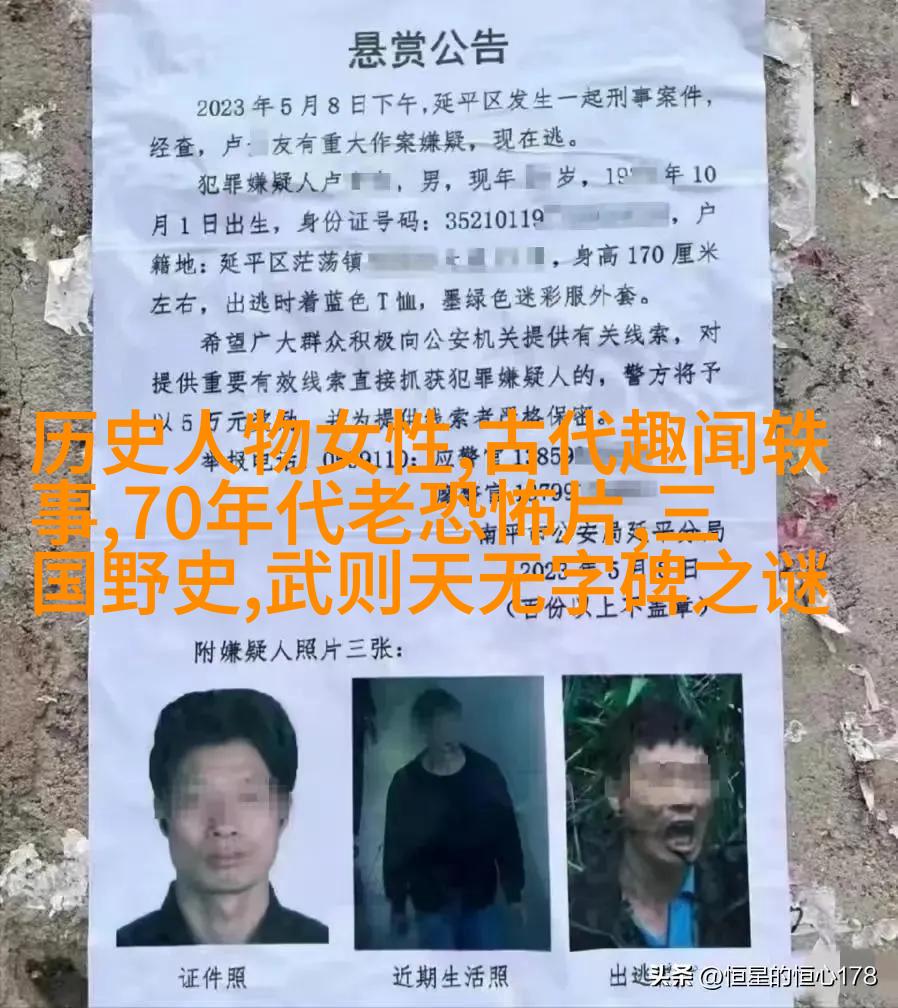 悬赏公告
2023年5月8日下午,延平区发生一起刑事案件,
经查,卢 友有重大作案嫌疑,现在逃。
犯罪嫌疑人卢 ,男,现年 岁,19 年10
月1日出生,身份证号码:35210119 ,户
籍地:延平区茫荡镇 ,身高170厘米
左右,出逃时着蓝色T恤,墨绿色迷彩服外套。
希望广大群众积极向公安机关提供有关线索,对
提供重要有效线索直接抓获犯罪嫌疑人的,警方将予
以5万元 ,并为提供线索者严格保密。
历史人物女性,古代趣闻轶
举报电话 应警官13859
事,70年代老恐怖片,三
南平市公安局延平分局
国野史,武则天无字碑之谜
2023年5月8日
附嫌疑人照片三张:
证件照
近期生活照
出逃
头条 @恒星的恒心178